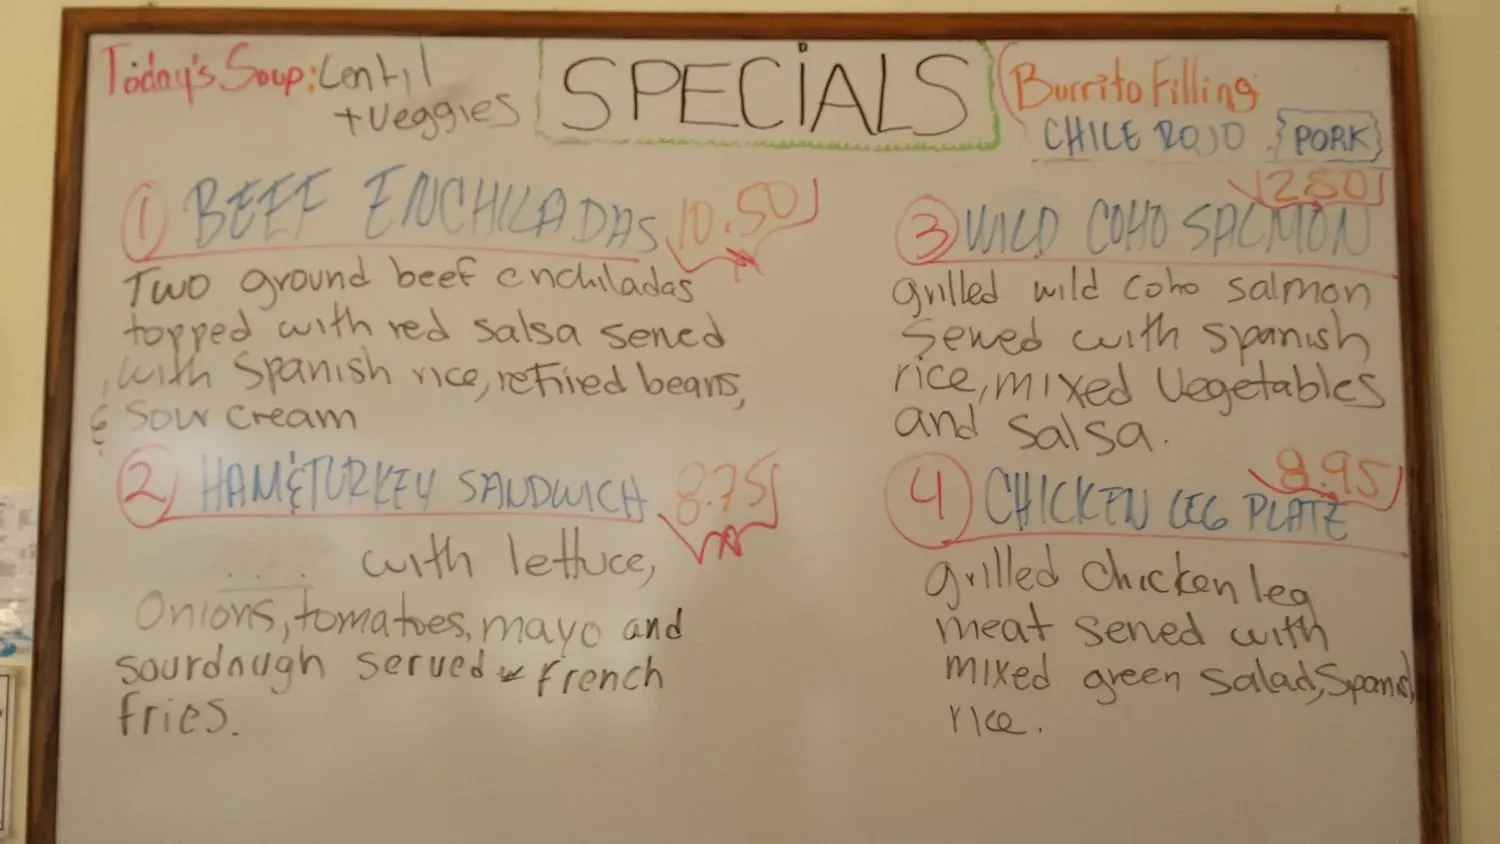 Today's Soup: Lentil
+ Veggies
SPECIALS
Burrito Filling
CHILE ROJO {PORK}
① BEEF ENCHILADAS 10.50
Two ground beef enchiladas
topped with red salsa served
with Spanish rice, refired beans,
& Sour cream
② HAM & TURKEY SANDWICH 8.75
with lettuce,
Onions, tomatoes, mayo and
sourdough served w french
fries.
12.50
③ WILD COHO SALMON
grilled wild coho salmon
served with spanish
rice, mixed vegetables
and salsa.
8.95
④ CHICKEN LEG PLATE
grilled chicken leg
meat served with
mixed green salad, Spanish
rice.